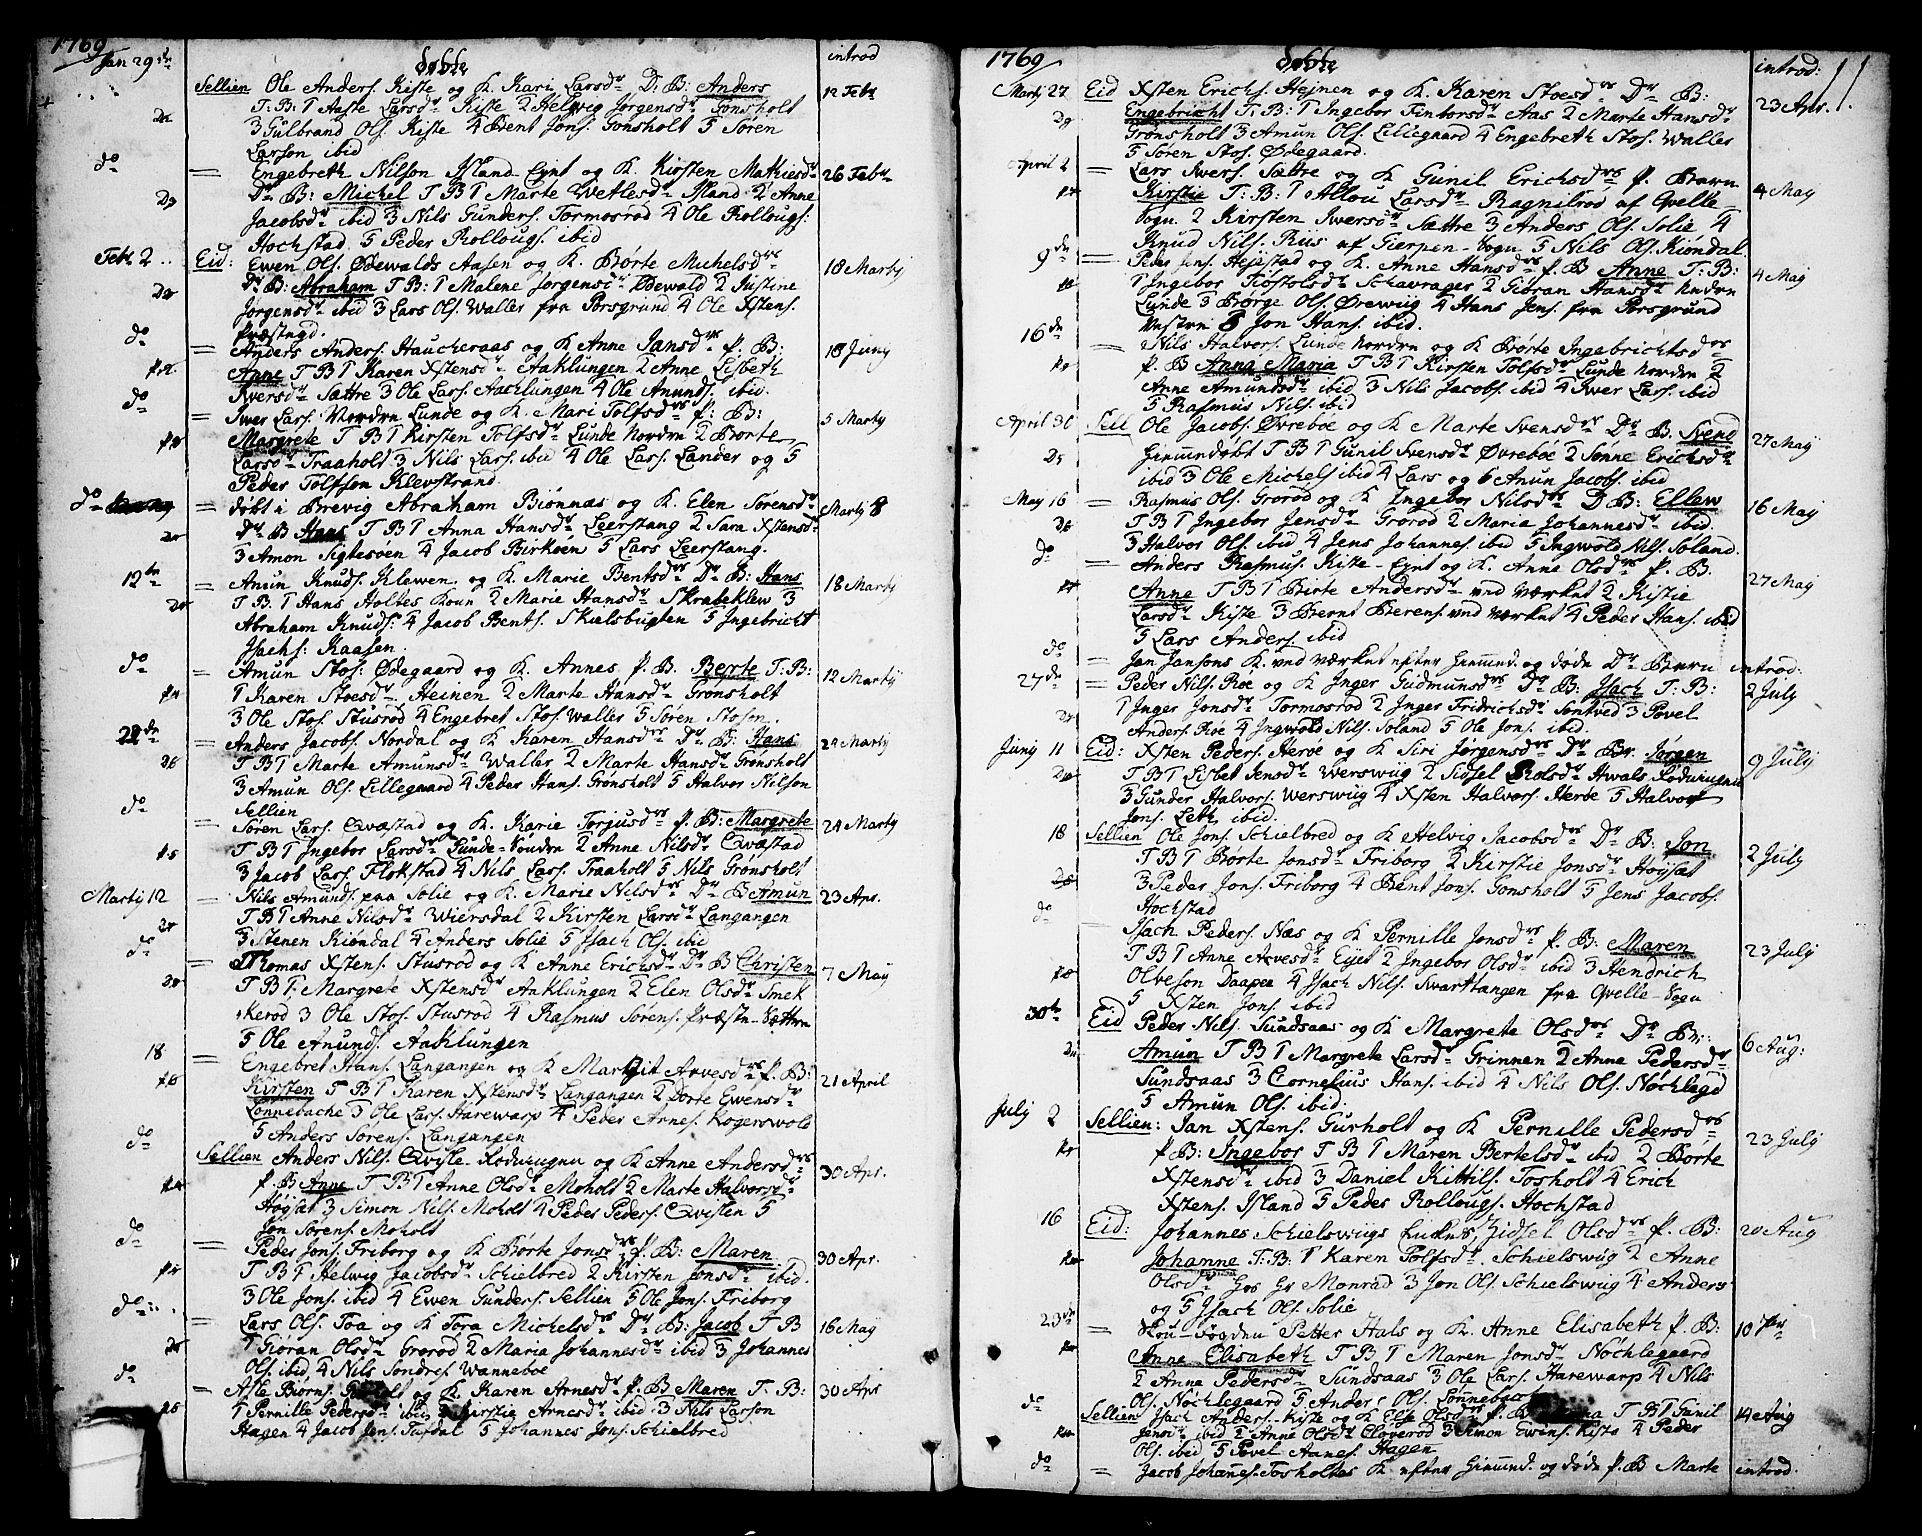 1769
Døbte
introd
Jan 29de Sellien Ole Anders. Kiste og K. Kari Larsdr Dr B: Anders 12 Febr
T: B: 1 Aaste Larsdr Kiste 2 Helvig Jørgensdr Gonsholt
3 Gulbrand Ols. Kiste 4 Bent Jons. Gonsholt 5 Søren
Larson ibid
do = Engebreth Nilson Island Eynt og K. Kirsten Mathiesdr 26 Febr
Dr B: Michel T B 1 Marte Wetlesdr Island 2 Anne
Jacobsdr ibid 3 Nils Gunders. Tormosrød 4 Ole Rollougs.
Hochstad 5 Peder Rollougs. ibid
Febr 2 Eid: Ewen Ols. Ødewalds Aasen og K. Børte Michelsdr 18 Martij
Dr B: Abraham T B: 1 Malene Jørgensdr Ødewald 2 Justine
Jørgensdr ibid 3 Lars Ols. Waller fra Porsgrund 4 Ole Xstens.
Præstegd.
do = Anders Anders. Haucheraas og K Anne Jansdr P. B: 18 Junij
Anne T B 1 Karen Xstensdr Aaklungen 2 Anne Lisbeth
Iwersdr Sættre 3 Ole Lars. Aaklungen 4 Ole Anunds. ibid.
do = Iwer Lars. Nordre Lunde og K. Mari Tolfsdr P: B: 5 Martij
Margrete T B 1 Kirsten Tolfsdr Lunde Nordre 2 Børte
Larsdr Traaholt 3 Nils Lars. ibid 4 Ole Lars. Lander og 5
Peder Tolfson Klevstrand.
do = døbt i Brevig Abraham Biønnæs og K. Elen Sørensdr Martij 8
Dr B Hans T B 1 Anna Hansdr Leerstang 2 Sara Xstensdr
3 Amon Siglesøen 4 Jacob Birkøen 5 Lars Leerstang.
12te = Anun Knuds. Klewen og K. Marie Bentsdr Dr B: Hans 18 Martij
T. B. 1 Hans Holtes Koun 2 Marie Hansdr Skrabeklew 3
Abraham Knuds: 4 Jacob Bents. Skielsbugten 5 Ingebricht
Isachs: Kaasen.
do = Amun Stos. Ødegaard og K. Annes P. B. Berte T. B: 12 Martij
1 Karen Stoesdr Heinen 2 Marte Hansdr Grønsholt
3 Ole Stos. Stusrød 4 Engebret Stos. Waller 5 Søren Stoson.
22de = Anders Jacobs. Nordal og K Karen Hansdr Dr B: Hans 24 Martij
T B 1 Marte Amunsdr Waller 2 Marte Hansdr Grønsholt
3 Amun Ols. Lillegaard 4 Peder Hans. Grønsholt 5 Halvor Nilson
Sellien
do = Søren Lars. Qvæstad og K. Karie Torjusdr P. B: Margrete 24 Martij
T B 1 Ingebor Larsdr Lunde-Søndre 2 Anne Nilsdr Qvæstad
3 Jacob Lars. Flokstad 4 Nils Lars. Traaholt 5 Nils Grønsholt
Martij 12 = Nils Amunds. paa Solie og K. Marie Nilsdr Dr B Amun 23 Apr.
T B 1 Anne Nilsdr Wiersdal 2 Kirsten Larsdr Langangen
3 Stenen Kiøndal 4 Anders Solie 5 Isach Ols. ibid
do = Thomas Xstens. Stusrød og K Anne Erichsdr Dr B Christen 7 May
T B 1 Margrete Xstensdr Aaklungen 2 Elen Olsdr Smek
kerød 3 Ole Stos. Stusrød 4 Rasmus Sørens. Præste-Sættre
5 Ole Anunds. Aaklungen
18 = Engebret Hans. Langangen og K Margit Arvesdr P. B: 21 April
Kirsten T B 1 Karen Xstensdr Langangen 2 Dorte Ewensdr
Lønnebache 3 Ole Lars. Harewarp 4 Peder Arnes. Kogerswold
5 Anders Sørens. Langangen
do Sellien Anders Nils. Qvisle og K Anne Andersdr 30 Apr.
P. B Anne T B 1 Anne Olsdr Moholt 2 Marte Halvorsdr
Høysæt 3 Simon Nils. Moholt 4 Peder Peders. Qvislen 5
Jon Sørens. Moholt
do = Peder Jons. Friborg og K Børte Jonsdr P. B: Maren 30 Apr.
T B 1 Helwig Jacobsdr Schielbred 2 Kirsten Jonsdr ibid.
3 Ole Jons. ibid 4 Ewen Gunders. Sellien 5 Ole Jons. Friborg
do = Lars Ols. Toa og K Tora Michelsdr Dr B: Jacob T B 16 May
1 Giøran Olsdr Grorød 2 Maria Johannesdr ibid 3 Johannes
Ols. ibid, 4 Nils Sondres. Wanneboe
do = Asle Biørns. og K. Karen Arnesdr P. B Maren T. B: 30 Apr
1 Pernille Pedersdr ibid 2 Kirstie Arnesdr ibid 3 Nils Larson
Hagen 4 Jacob Jens. Tufdal 5 Johannes Jons. Schielbred
1769
Døbte
introd: 11
Martij 27 Eid Xsten Erichs. Hejnen og K. Karen Stoesdr Dr B: 23 Apr.
Engebricht T: B: 1 Ingebor Finborsdr Aas 2 Marte Hansdr
Grønsholt 3 Amun Ols. Lillegaard 4 Engebreth Stos. Waller
5 Søren Stos. Ødegaard.
April 2 = Lars Iwers. Sættre og K Gunil Erichsdr P. Barn 4 May
Kirstie T: B: 1 Allou Larsdr Ragnilrød af Qvelle-
Sogn. 2 Kirsten Iwersdr Sættre 3 Anders Ols. Solie 4
Knud Nils. Riis af Gierpen-Sogn 5 Nils Ols. Kiøndal
9de = Peder Jens. Hejestad og K. Anne Hansdr P. B Anne T: B: 4 May
1 Ingebor Tiøstolsdr Schavrager 2 Giøran Hansdr Nedre
Lunde 3 Børge Ols. Ørewiig 4 Hans Jens. fra Porsgrund
Vestre 5 Jon Hans. ibid.
16de = Nils Halvors. Lunde Nordre og K Børte Ingebrichtsdr
P. B Anna Maria T B 1 Kirsten Tolfsdr Lunde Nordre 2
Anne Amundsdr ibid 3 Nils Jacobs. ibid 4 Iwer Lars. ibid
5 Rasmus Nils. ibid
April 30 Sell Ole Jacobs. Øvreboe og K Marte Svensdr Dr B. Svend 27 May
hiemmedøbt T B 1 Gunil Svensdr Øvrebøe 2 Sønne Erichsdr
ibid 3 Ole Michels. ibid 4 Lars og 5 Anun Jacobs. ibid
May 16 = Rasmus Ols. Grorød og K Ingebor Nilsdr D B: Ellew 16 May
T B 1 Ingebor Jensdr Grorød 2 Maria Johannesdr ibid.
3 Halvor Ols. ibid 4 Jens Johannes. ibid 5 Ingwold Nils. Soland.
do = Anders Rasmus. Kiste-Eynt og K. Anne Olsdr P. B. 27 May
Anne T B 1 Birte Andersdr ved Værket 2 Kistie
Larsdr Kiste 3 Bernt Berens. ved Værket 4 Peder Hans. ibid
5 Lars Anders. ibid
do = Jan Jansons K. ved Værket efter hiemmed. og døde Dr Barn introd:
27de = Peder Nils. Røe og K Inger Gudmunsdr Dr B: Isach T: B: 2 July
1 Inger Jonsdr Tormosrød 2 Inger Fridrichsdr Sontved 3 Povel
Anders. Røe 4 Ingwold Nils. Soland 5 Ole Jons. ibid.
Junij 11 Eid: Xsten Peders. Herøe og K Siri Jørgensdr Dr Br. Jørgen 9 July
T B 1 Lisbet Jensdr Werswiig 2 Sidsel Rolsdr Hwals
3 Gunder Halvors. Werswiig 4 Xsten Halvors. Herøe 5 Halvor
Jons. Leth ibid.
18 Sellien Ole Jons. Schielbred og K Helvig Jacobsdr Dr B: Jon 2 July
T B 1 Børte Jonsdr Friborg 2 Kirstie Jonsdr Høysæt
3 Peder Jons. Friborg 4 Bent Jons. Gonsholt 5 Jens Jacobs.
Hochstad
do Isach Peders. Næs og K Pernille Jonsdr P. B: Maren 23 July
T B 1 Anne Arvesdr Eyet 2 Ingebor Olsdr ibid 3 Hendrich
Olveson Daapen 4 Isach Nils. Swarttangen fra Qvelle-Sogn
5 Xsten Jons. ibid
30te Eid Peder Nils. Sundsaas og K Margrete Olsdr Dr Br: 6 Aug:
Amun T B 1 Margrete Larsdr Grinnen 2 Anne Pedersdr
Sundsaas 3 Cornelius Hans. ibid 4 Nils Ols. Nøchlegd
5 Amun Ols. ibid.
July 2 Sellien: Jan Xstens. Gurholt og K Pernille Pedersdr 23 July
P. B: Ingebor T B 1 Maren Bertelsdr ibid 2 Børte
Xstensdr ibid 3 Daniel Kittils. Tosholt 4 Erich
Xstens. Island 5 Peder Rollougs. Hochstad
16 Eid: Johannes Schielswiigs Zidsel Olsdr P. B: 20 Aug
Johanne T: B: 1 Karen Tolfsdr Schielswiig 2 Anne
Olsdr hos Hr Monrad 3 Jon Ols. Schielswiig 4 Anders
og 5 Isach Ols. Solie
23de = Skou-Fogden Petter Hals og K. Anne Elisabeth P. B: 10 7br
Anne Elisabeth T B 1 Maren Jonsdr Nøchlegaard
2 Anne Pedersdr Sundsaas 3 Ole Lars. Harewarp 4 Nils
Ols. Nøchlegaard 5 Anders Ols. Lønnebach
do Sellien Isach Anders. Kiste og K Else Olsdr P. B T B 1 Gunil 14 Aug
Jensdr ibid 2 Anne Olsdr Cloverød 3 Simon Ewens. Kiste 4 Peder
Ols. ibid 5 Povel Aanes. Hagen
do = Jacob Johanes. Tosholtes K efter hiemmed. og døde P. B Marte introd.